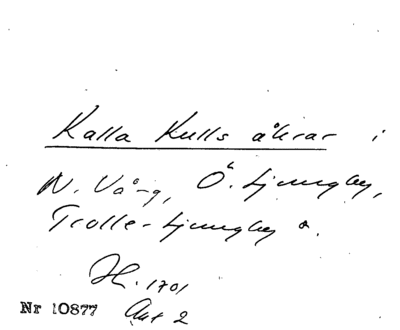 Kalla Kulls åkrar i
N. Vång, Ö. Ljungby,
Trolle-Ljungby s.
H. 1701
Nr 10877 Akt 2